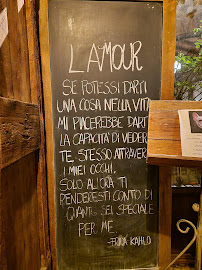 L'AMOUR
SE POTESSI DARTI
UNA COSA NELLA VITA
MI PIACEREBBE DARTI
LA CAPACITÀ DI VEDERE
TE STESSO ATTRAVER
I MIEI OCCHI.
SOLO ALLORA TI
RENDERESTI CONTO DI
QUANTO SEI SPECIALE
PER ME.
-FRIDA KAHLO